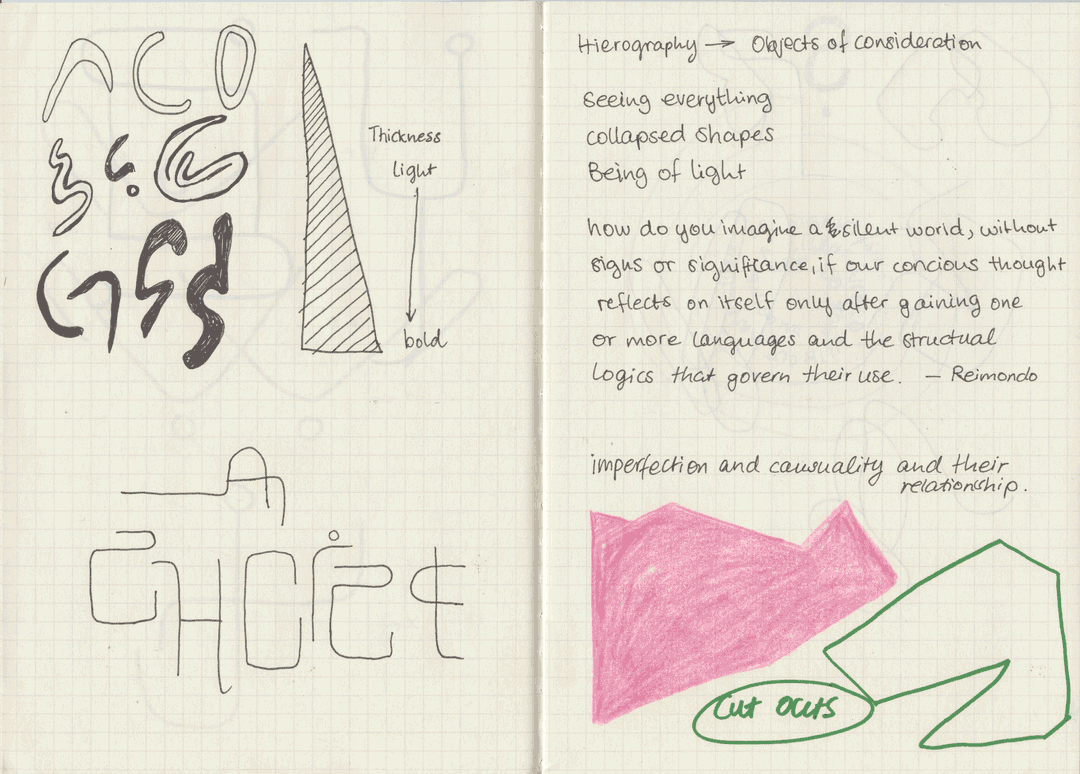 Thickness
light
bold
A
CHOiCE
Hierography → Objects of consideration
Seeing everything
collapsed shapes
Being of light
how do you imagine a silent world, without
signs or significance, if our concious thought
reflects on itself only after gaining one
or more languages and the structual
logics that govern their use. — Reimondo
imperfection and causuality and their
relationship.
CUT OUTS